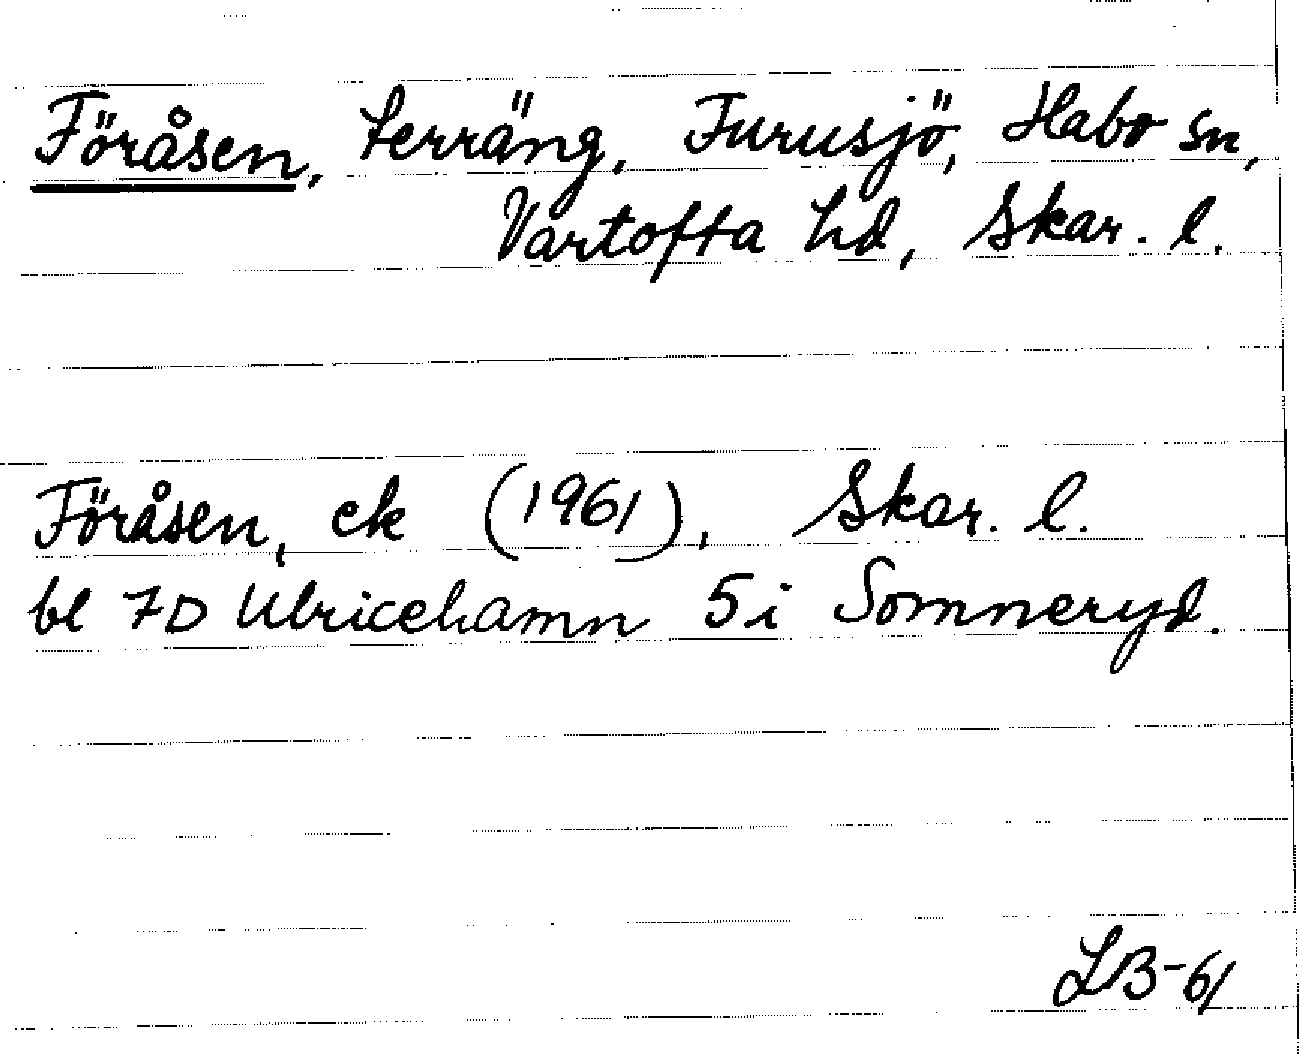 Föråsen, terräng, Furusjö, Habo sn,
Vartofta hd, Skar. l.
Föråsen, ek (1961), Skar. l.
bl 7D Ulricehamn 5i Somneryd.
LB-61